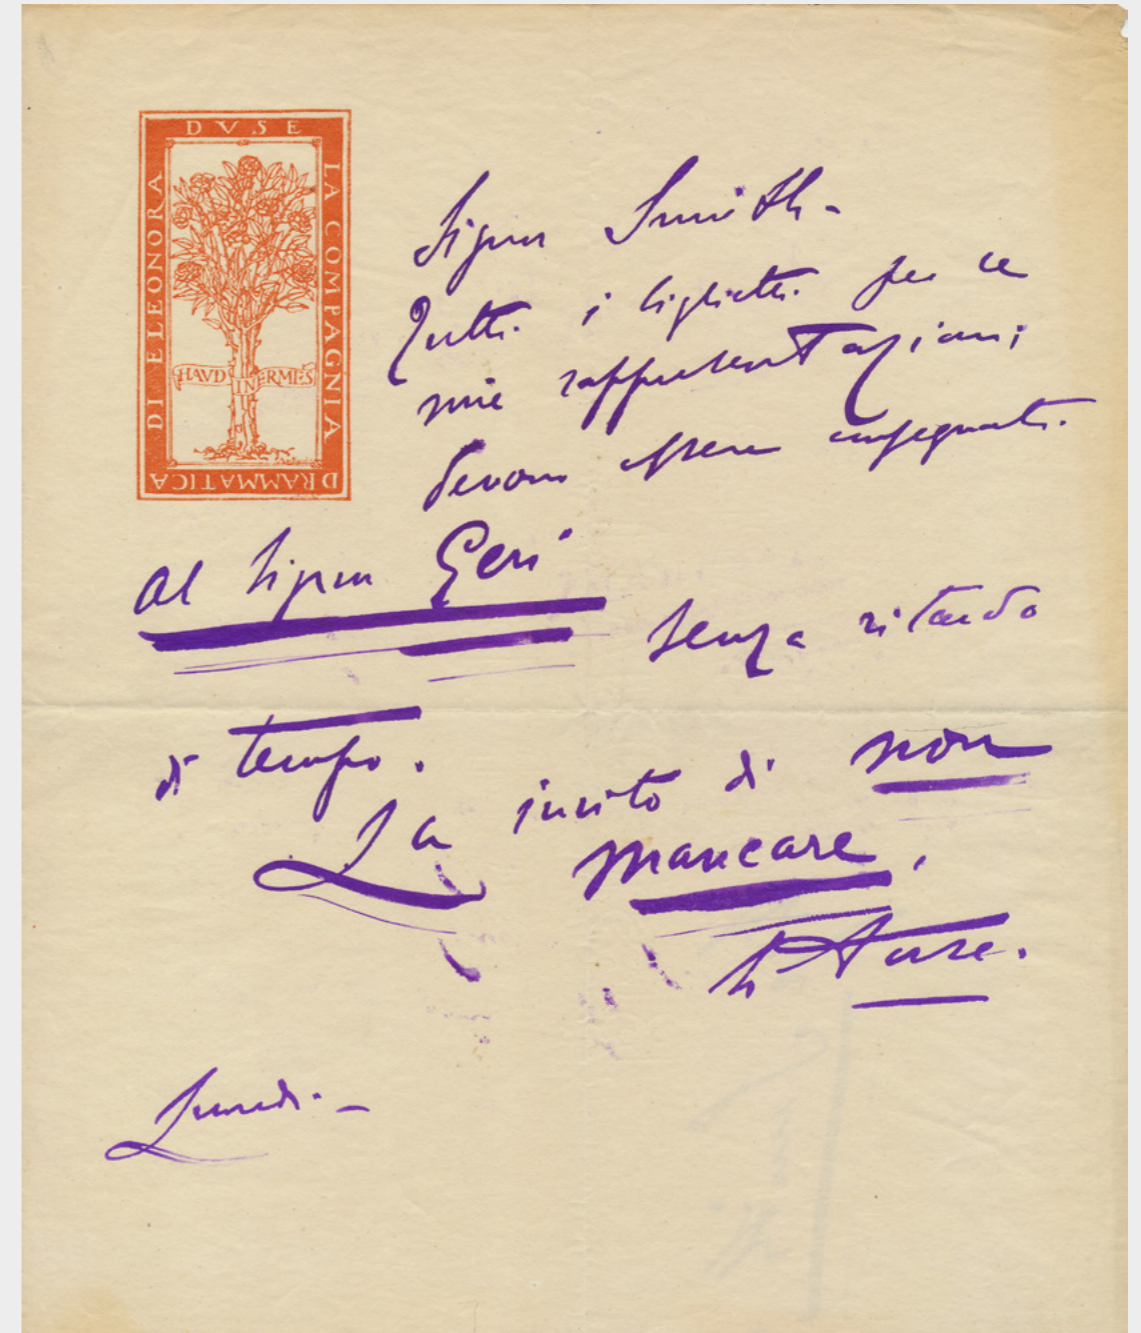 DI ELEONORA DVSE LA COMPAGNIA DRAMMATICA
HAVD INERMIS
Signor Smith-
Tutti i biglietti per le
mie rappresentazioni
devono essere consegnati
al Signor Geri
senza ritardo
di tempo.
La invito di non
mancare.
Duse.
Lunedi. -